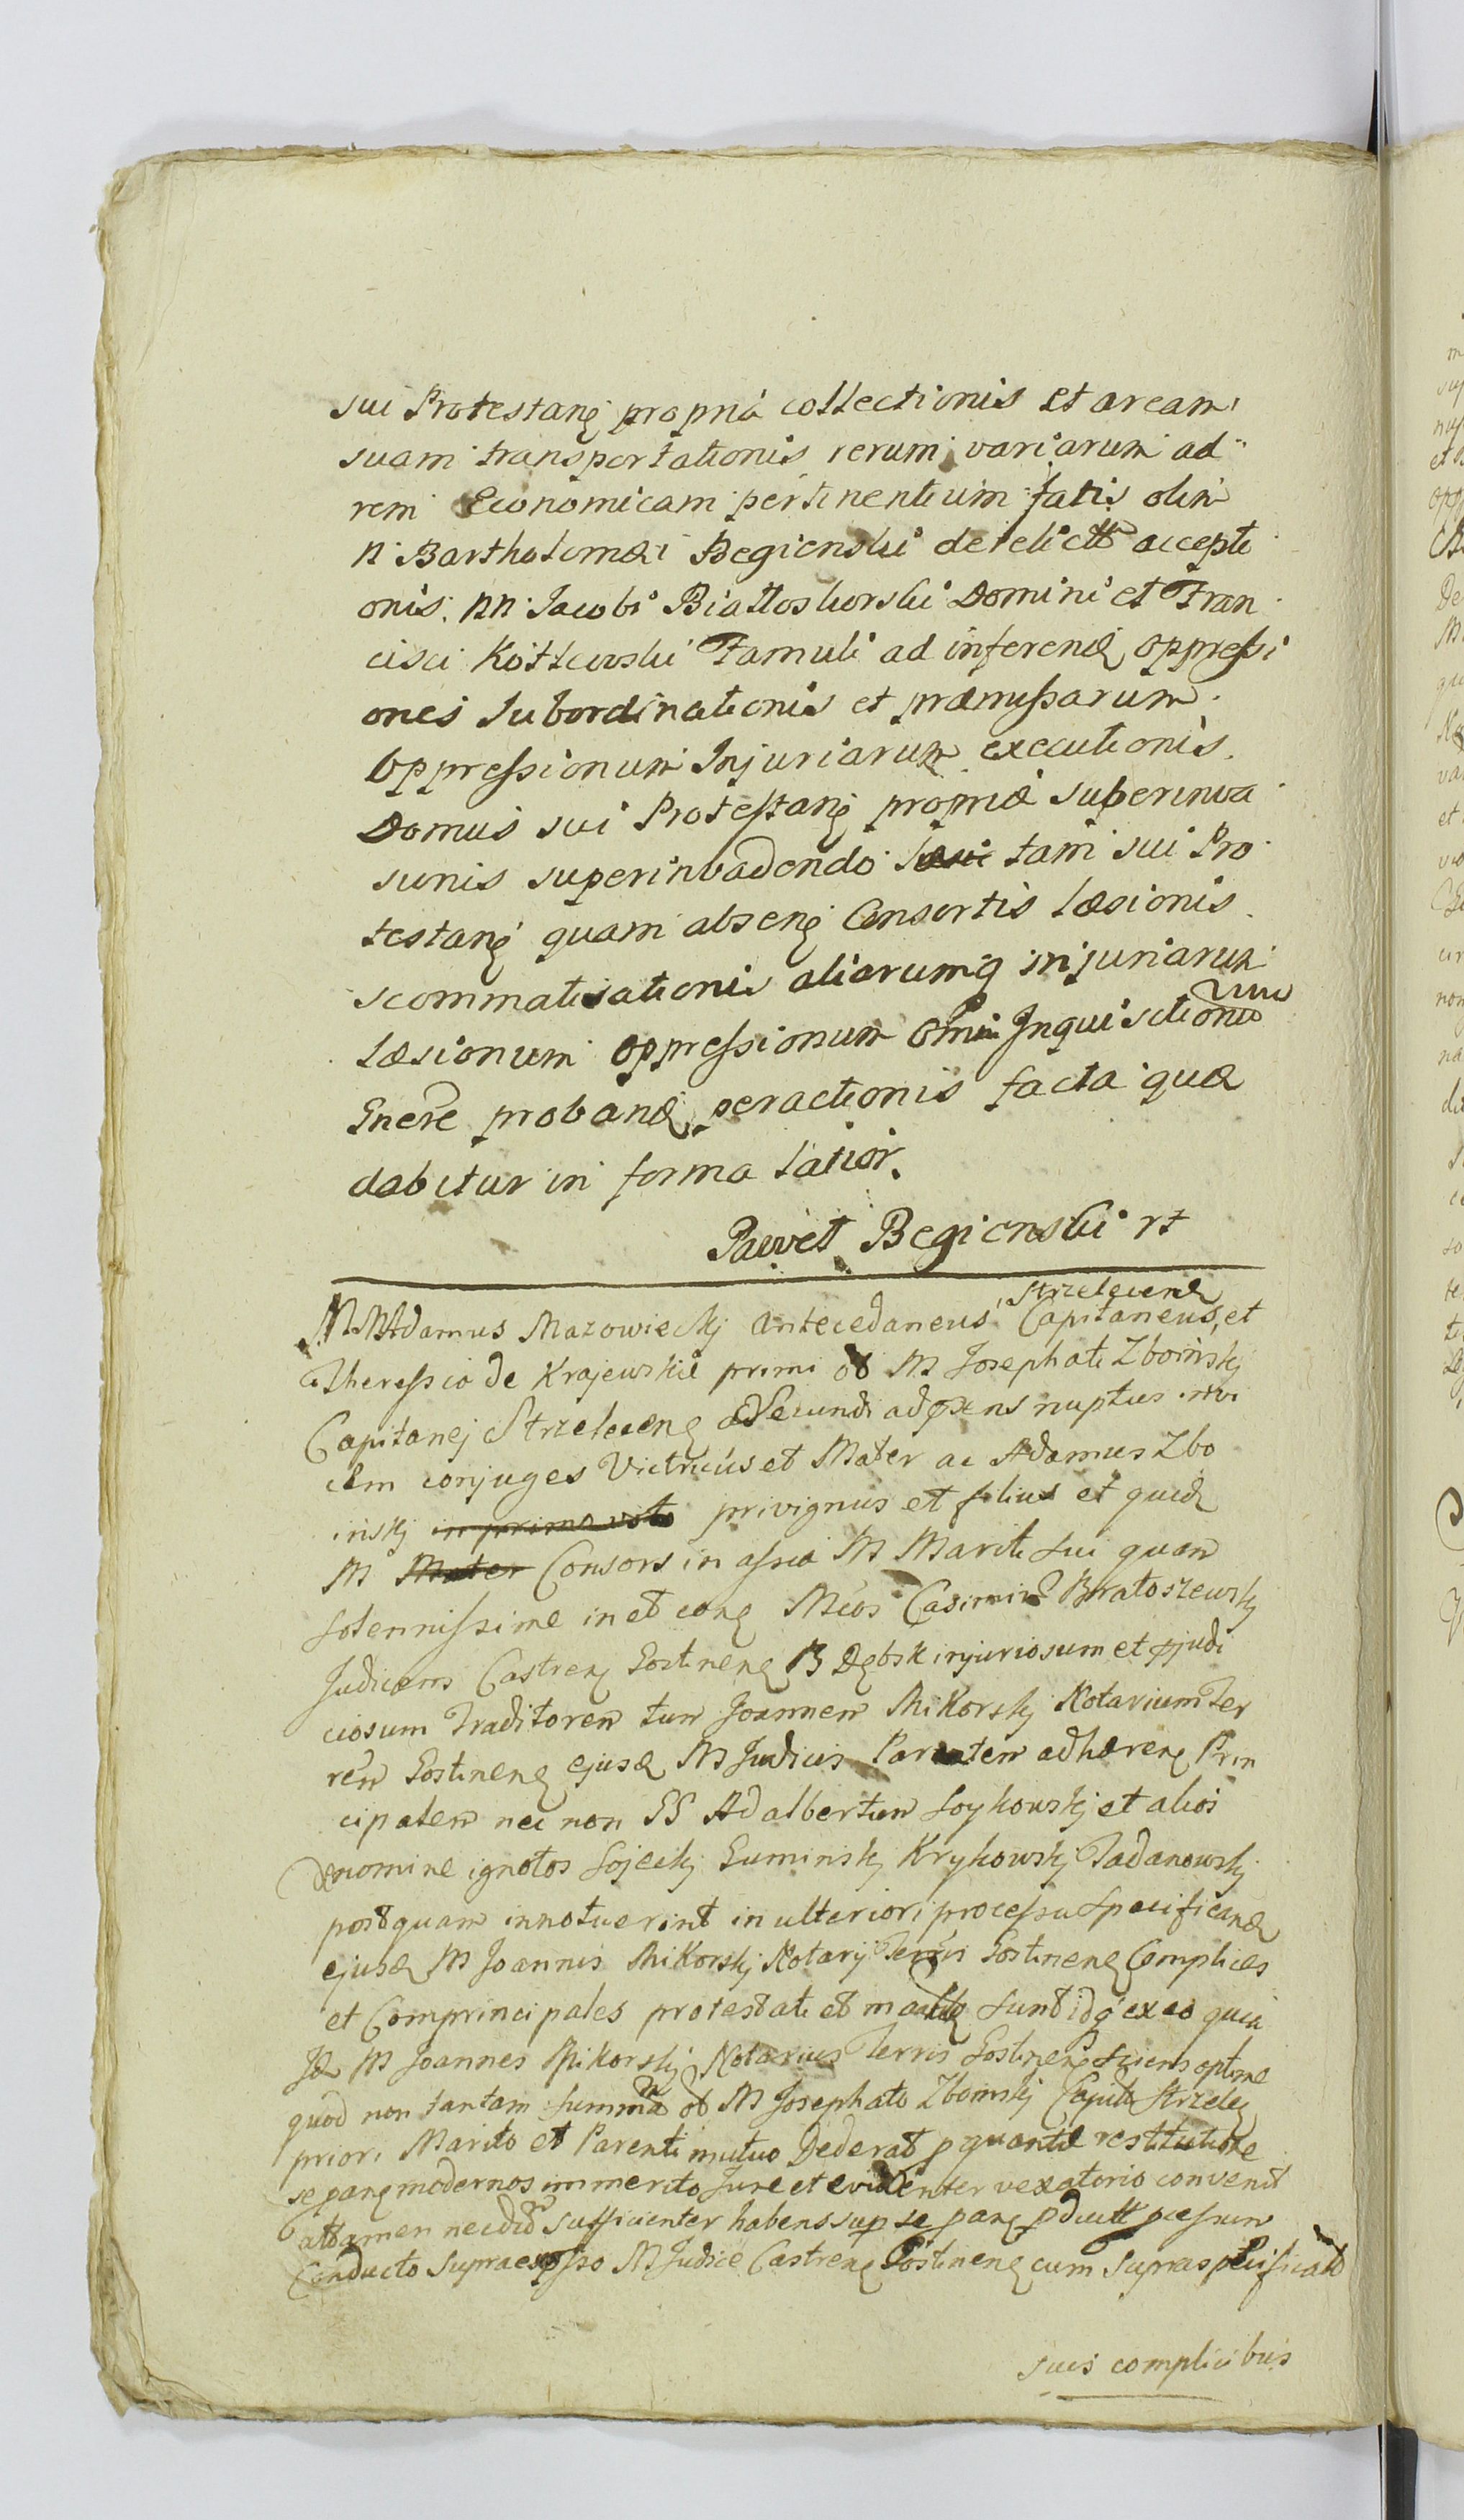 sui Protestanę propria collectionis et aream
suam transportationis rerum variarum ad
rem Economicam pertinentium fatis olim
N. Bartholomæi Begienski derelictt accepti
onis. NN. Jacobi Białłoskorski Domini et Fran
cisci Kotłowski Famuli ad inferenđ oppressi
ones subordinationis et præmissarum
oppressionum Injuriarum executionis.
Domus sui Protestanę propriæ superinva
sionis superinvadendo tam sui Pro
testanę quam absenę Consortis læsionis
scommatisationis aliarumq injuriarum
læsionum oppressionum Inquisitionis
Enere probanđ peractionis facta quæ
dabitur in forma latiori.
Paweł Begienski
Strzelecenę
MM Adamus Mazowieckj Antecedaneus Capitaneus, et
Theressia de Krajewskie primi ol M Josephati Zboinskj
Capitanej Strzelecenę secundi ad pñsens nuptus
cem conjuges Victricus et Mater ac Adamus Zbo
inskj in primo voto privignus et filius et quidę
M Mater Consors in assia M Mariti sui quam
solennissime in et conę Mcos Casimirum Bratoszewskj
Judicem Castrenę Gostinenę B Dębsk injuriosum et pjudi
ciosum Traditorem tum Joannem Mikorskj Notarium Ter
ren Gostinenę ejusđ M Judicis Parentem adhærenę Prin
cipalem nec non GG Adalbertum Soykowskj et alios
nomine ignotos Sojeckj Guminskj Krykowskj Tadanowskj
postquam innotuerint in ulteriori processu specificanđ
ejusđ M Joannis Mikorskj Notarij Terris Gostinenę Complices
et Comprincipales protestati et sunt idq ex eo quia
Jđ M Joannes Mikorskj Notarius Terris Gostinenę sciens optime
quod non tantam summam ol M Josephato Zboinskj Capito Strzelę
priori Marito et Parenti mutuo Dederat p quantæ restitutione
se panę modernos immerito Jure et evidenter vexatorio convenit
attamen necdum sufficienter habens sup se panę pductt pcessum
Conducto supraexpsso M Judice Castrenę Gostinenę cum supraspecificatt
suis complicibus